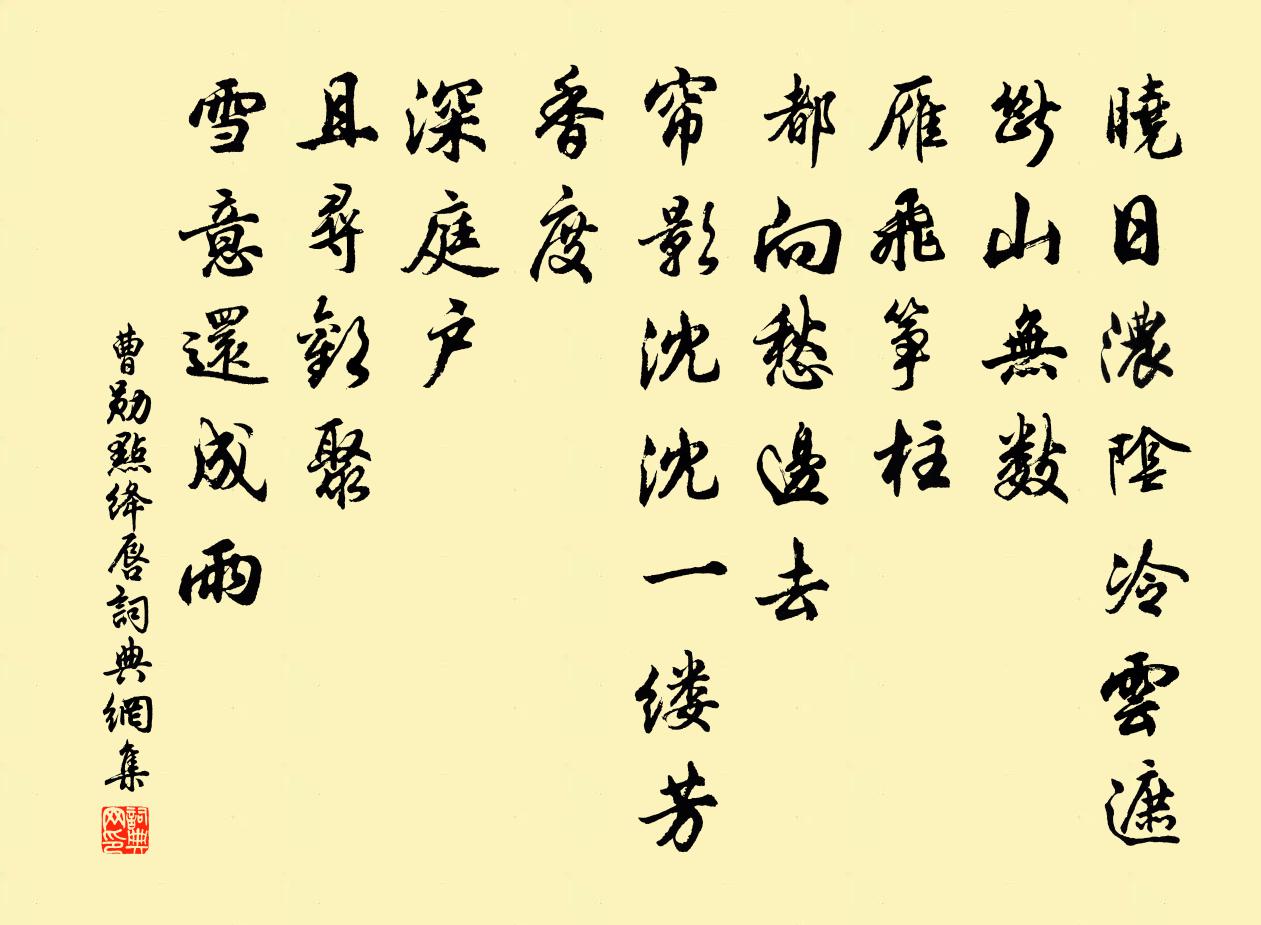 曉日濃陰冷雲遮
斷山無數
雁飛箏柱
都向愁邊去
帘影沈沈一缕芳
香度
深庭户
且尋歡聚
雪意還成雨
曹勛點絳唇詞典網集
詞典网印